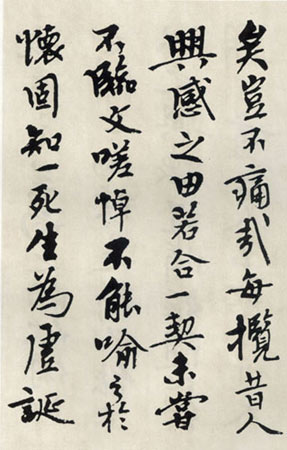 矣豈不痛哉每攬昔人
興感之由若合一契未嘗
不臨文嗟悼不能喻之於
懷固知一死生為虛誕